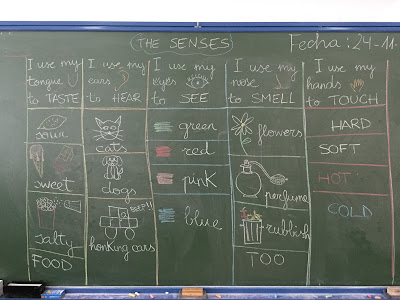 THE SENSES
Fecha: 24-11-
I use my
tongue
to TASTE
sour
sweet
salty
FOOD
I use my
ears
to HEAR
cats
dogs
BEEP!!
honking cars
I use my
eyes
to SEE
green
red
pink
blue
I use my
nose
to SMELL
flowers
perfume
rubbish
TOO
I use my
hands
to TOUCH
HARD
SOFT
HOT
COLD